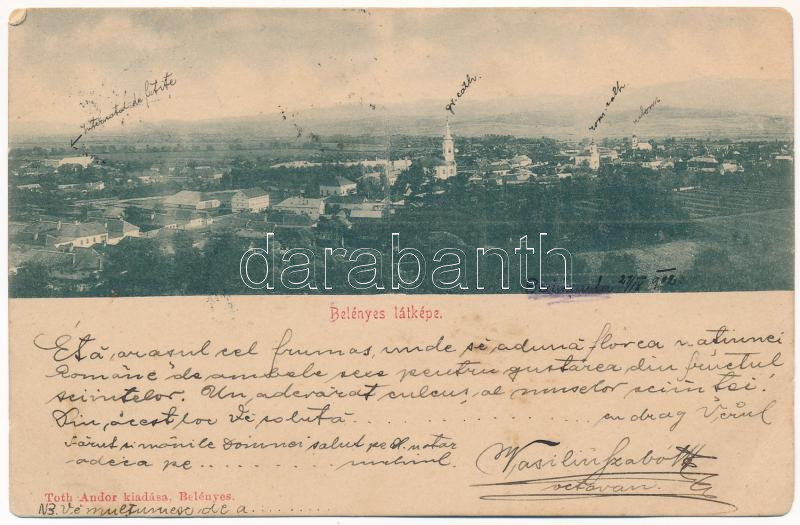 Internatul de fetite
gr. cath.
rom. cath
reform
darabanth
27/X 1902
Belényes látképe.
Étă, orasul cel frumos, unde se adună florea natiunei
Române de ambele sexe pentru gustarea din fructul
sciintelor. Un adevărat culcuș al muselor sciintei!
Din acest loc Ve salută .......... cu drag Vĕrul
Sărut mânile Domnei salut pe Dl. notar
adeca pe .......... unchiul.
Vasiliu Szabo
octavan.
Toth Andor kiadása, Belényes.
NB. Ve multumesc de a ..........